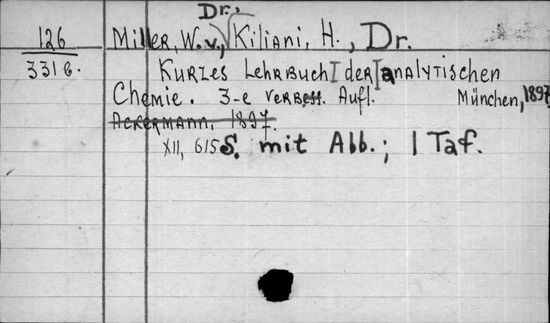 Dr.
126 Miller, W. v., Kiliani, H., Dr.
331 б. Kurzes Lehrbuch der analytischen
Chemie. 3-e verbess. Aufl. München, 1897
Ackermann. 1897.
XII, 615 S. mit Abb.; 1 Taf.